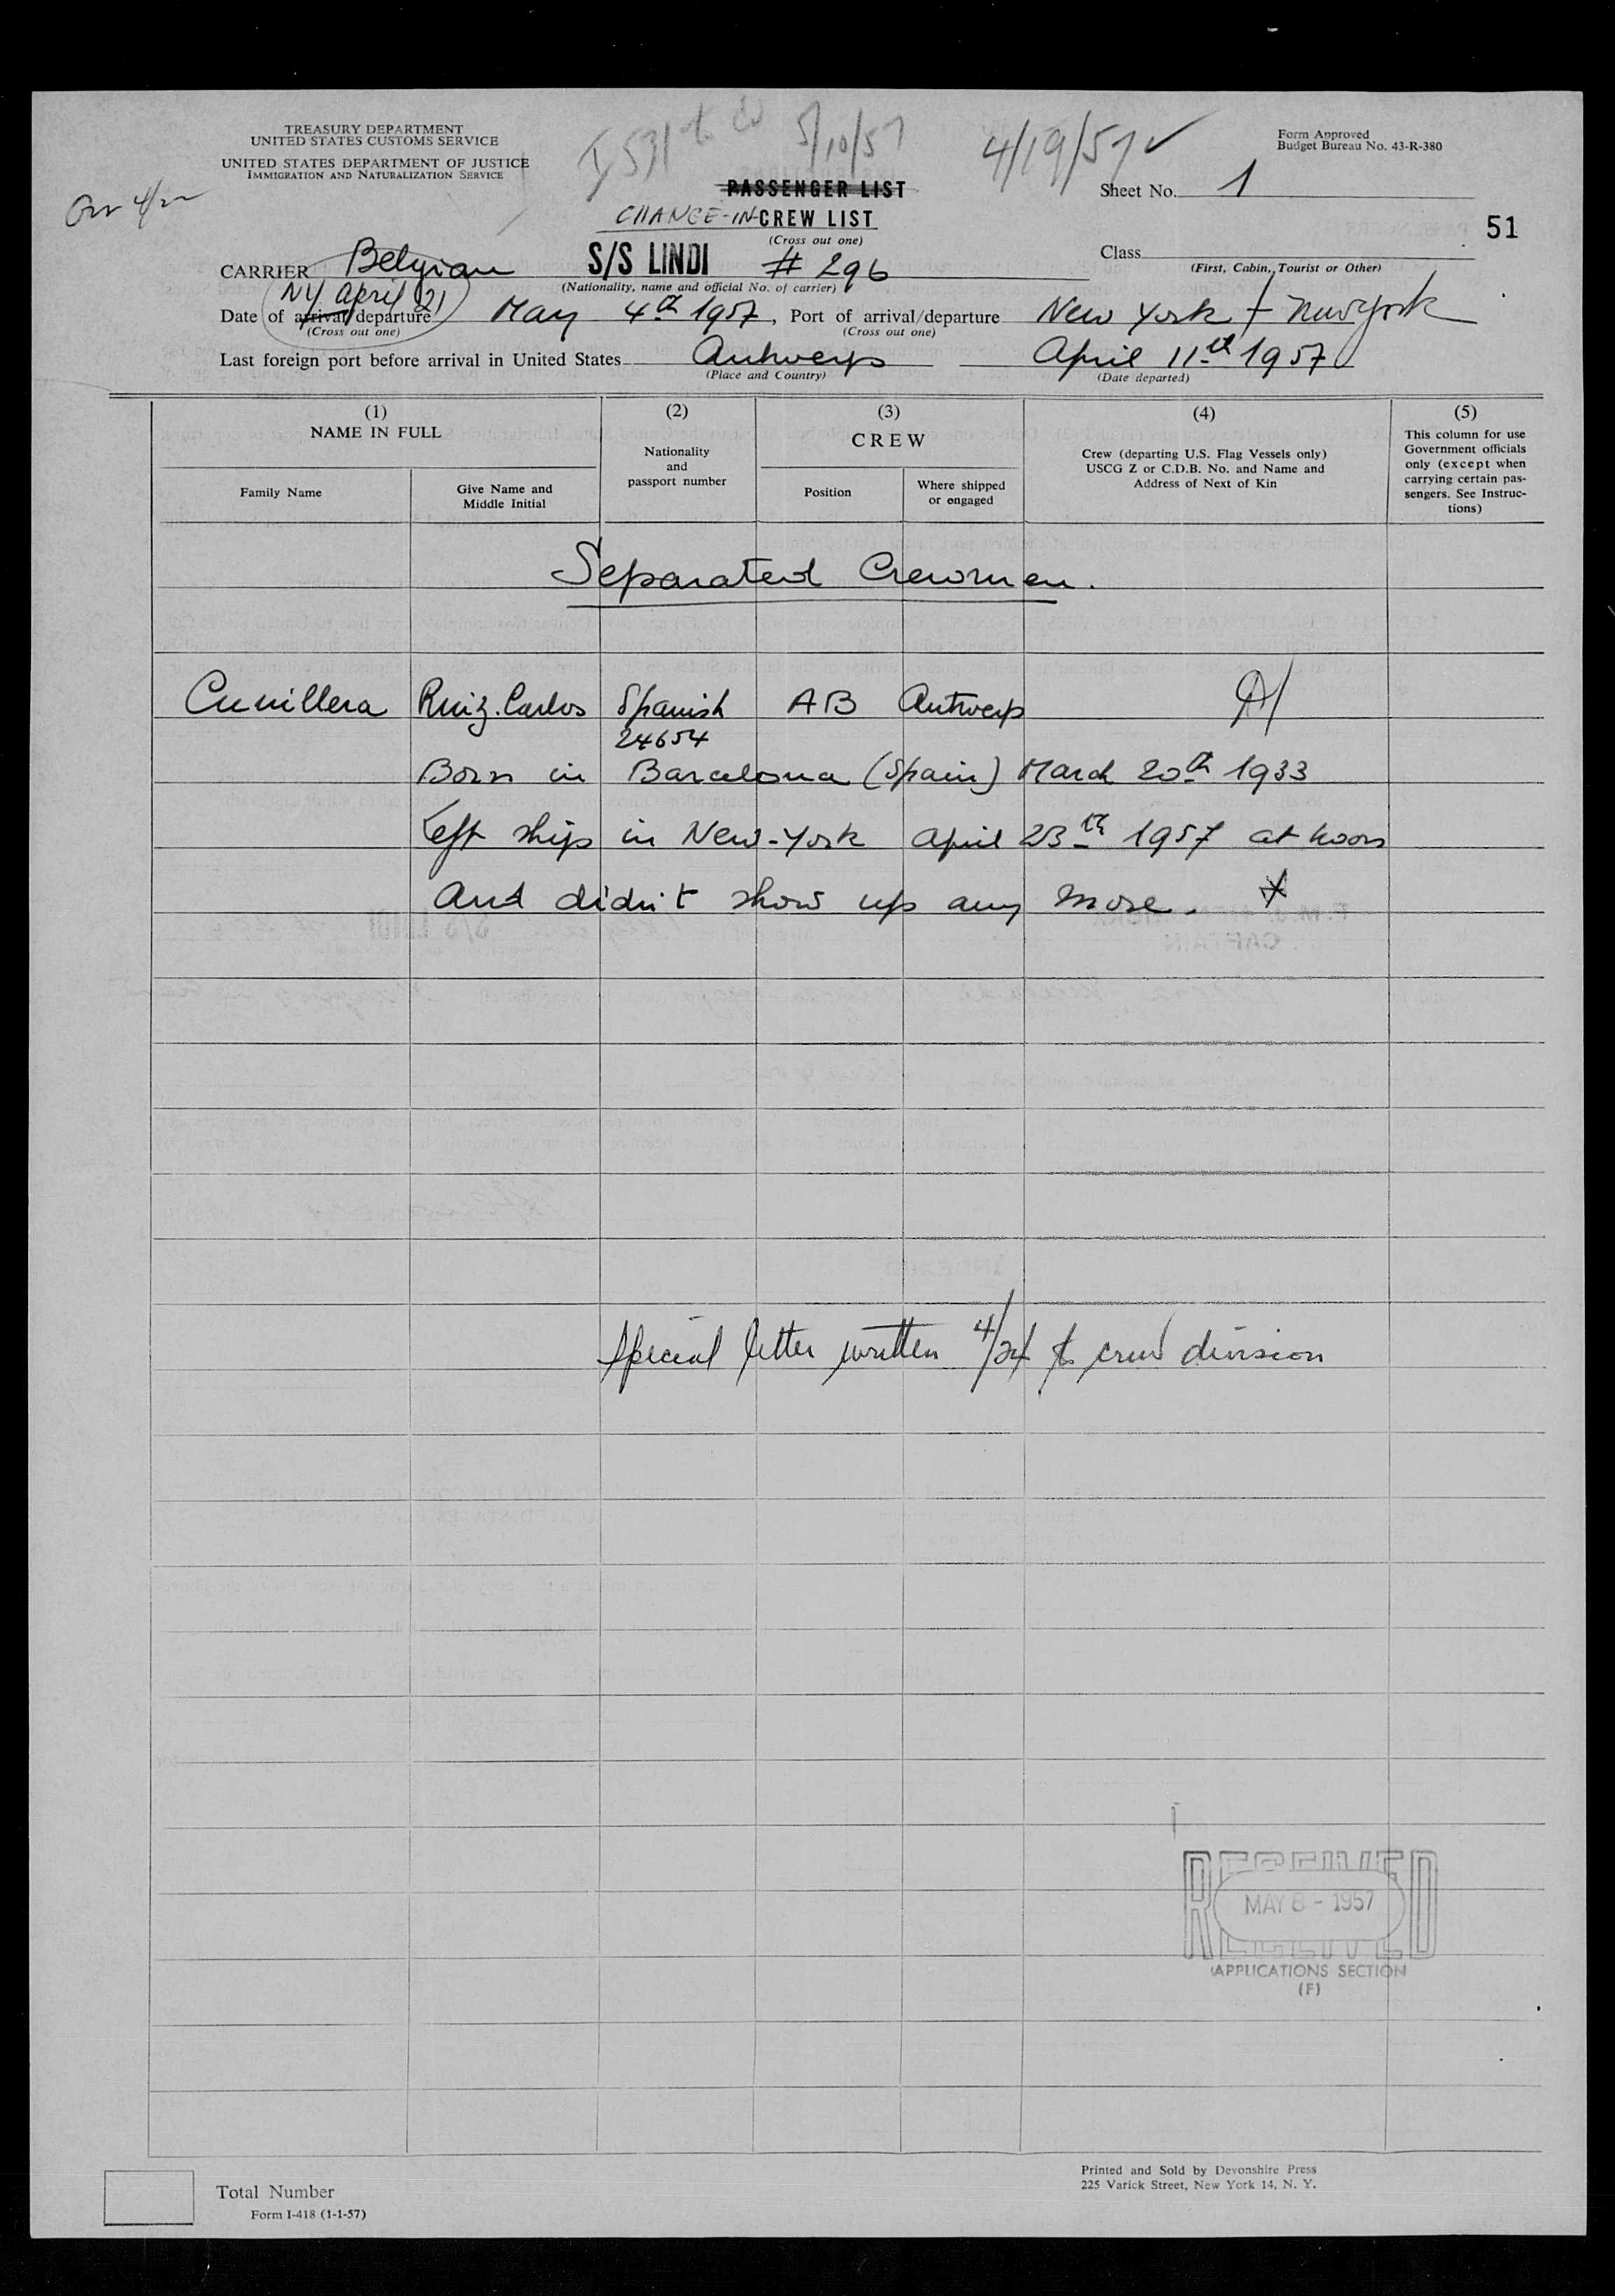 TREASURY DEPARTMENT
UNITED STATES CUSTOMS SERVICE
UNITED STATES DEPARTMENT OF JUSTICE
IMMIGRATION AND NATURALIZATION SERVICE
5/10/57
4/19/57 ✓
Form Approved
Budget Bureau No. 43-R-380
PASSENGER LIST
Sheet No. 1
CHANGE-IN-CREW LIST
(Cross out one)
51
CARRIER Belgian S/S LINDI # 296
Class
(First, Cabin, Tourist or Other)
(Nationality, name and official No. of carrier)
NY April 21
Date of arrival/departure May 4th 1957, Port of arrival/departure New York - New York
(Cross out one) (Cross out one)
Last foreign port before arrival in United States Antwerp April 11th 1957
(Place and Country) (Date departed)
(1)
NAME IN FULL
Family Name
Give Name and
Middle Initial
(2)
Nationality
and
passport number
(3)
CREW
Position
Where shipped
or engaged
(4)
Crew (departing U.S. Flag Vessels only)
USCG Z or C.D.B. No. and Name and
Address of Next of Kin
(5)
This column for use
Government officials
only (except when
carrying certain pas-
sengers. See Instruc-
tions)
Separated Crewmen.
Cunillera Ruiz. Carlos Spanish AB Antwerp
24654
Born in Barcelona (Spain) March 20th 1933
Left ship in New-York April 23th 1957 at noon
And didn't show up any more.
Special letter written 4/24 to crew division
RECEIVED
MAY 8 - 1957
RECEIVED
APPLICATIONS SECTION
(F)
Total Number
Form I-418 (1-1-57)
Printed and Sold by Devonshire Press
225 Varick Street, New York 14, N. Y.